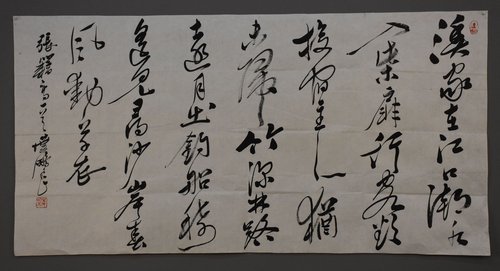 漁家在江口潮水
入柴扉行客欲
投宿主人猶
未歸竹深林路
遠月出釣船稀
遥見尋沙岸春
風動草衣
張籍